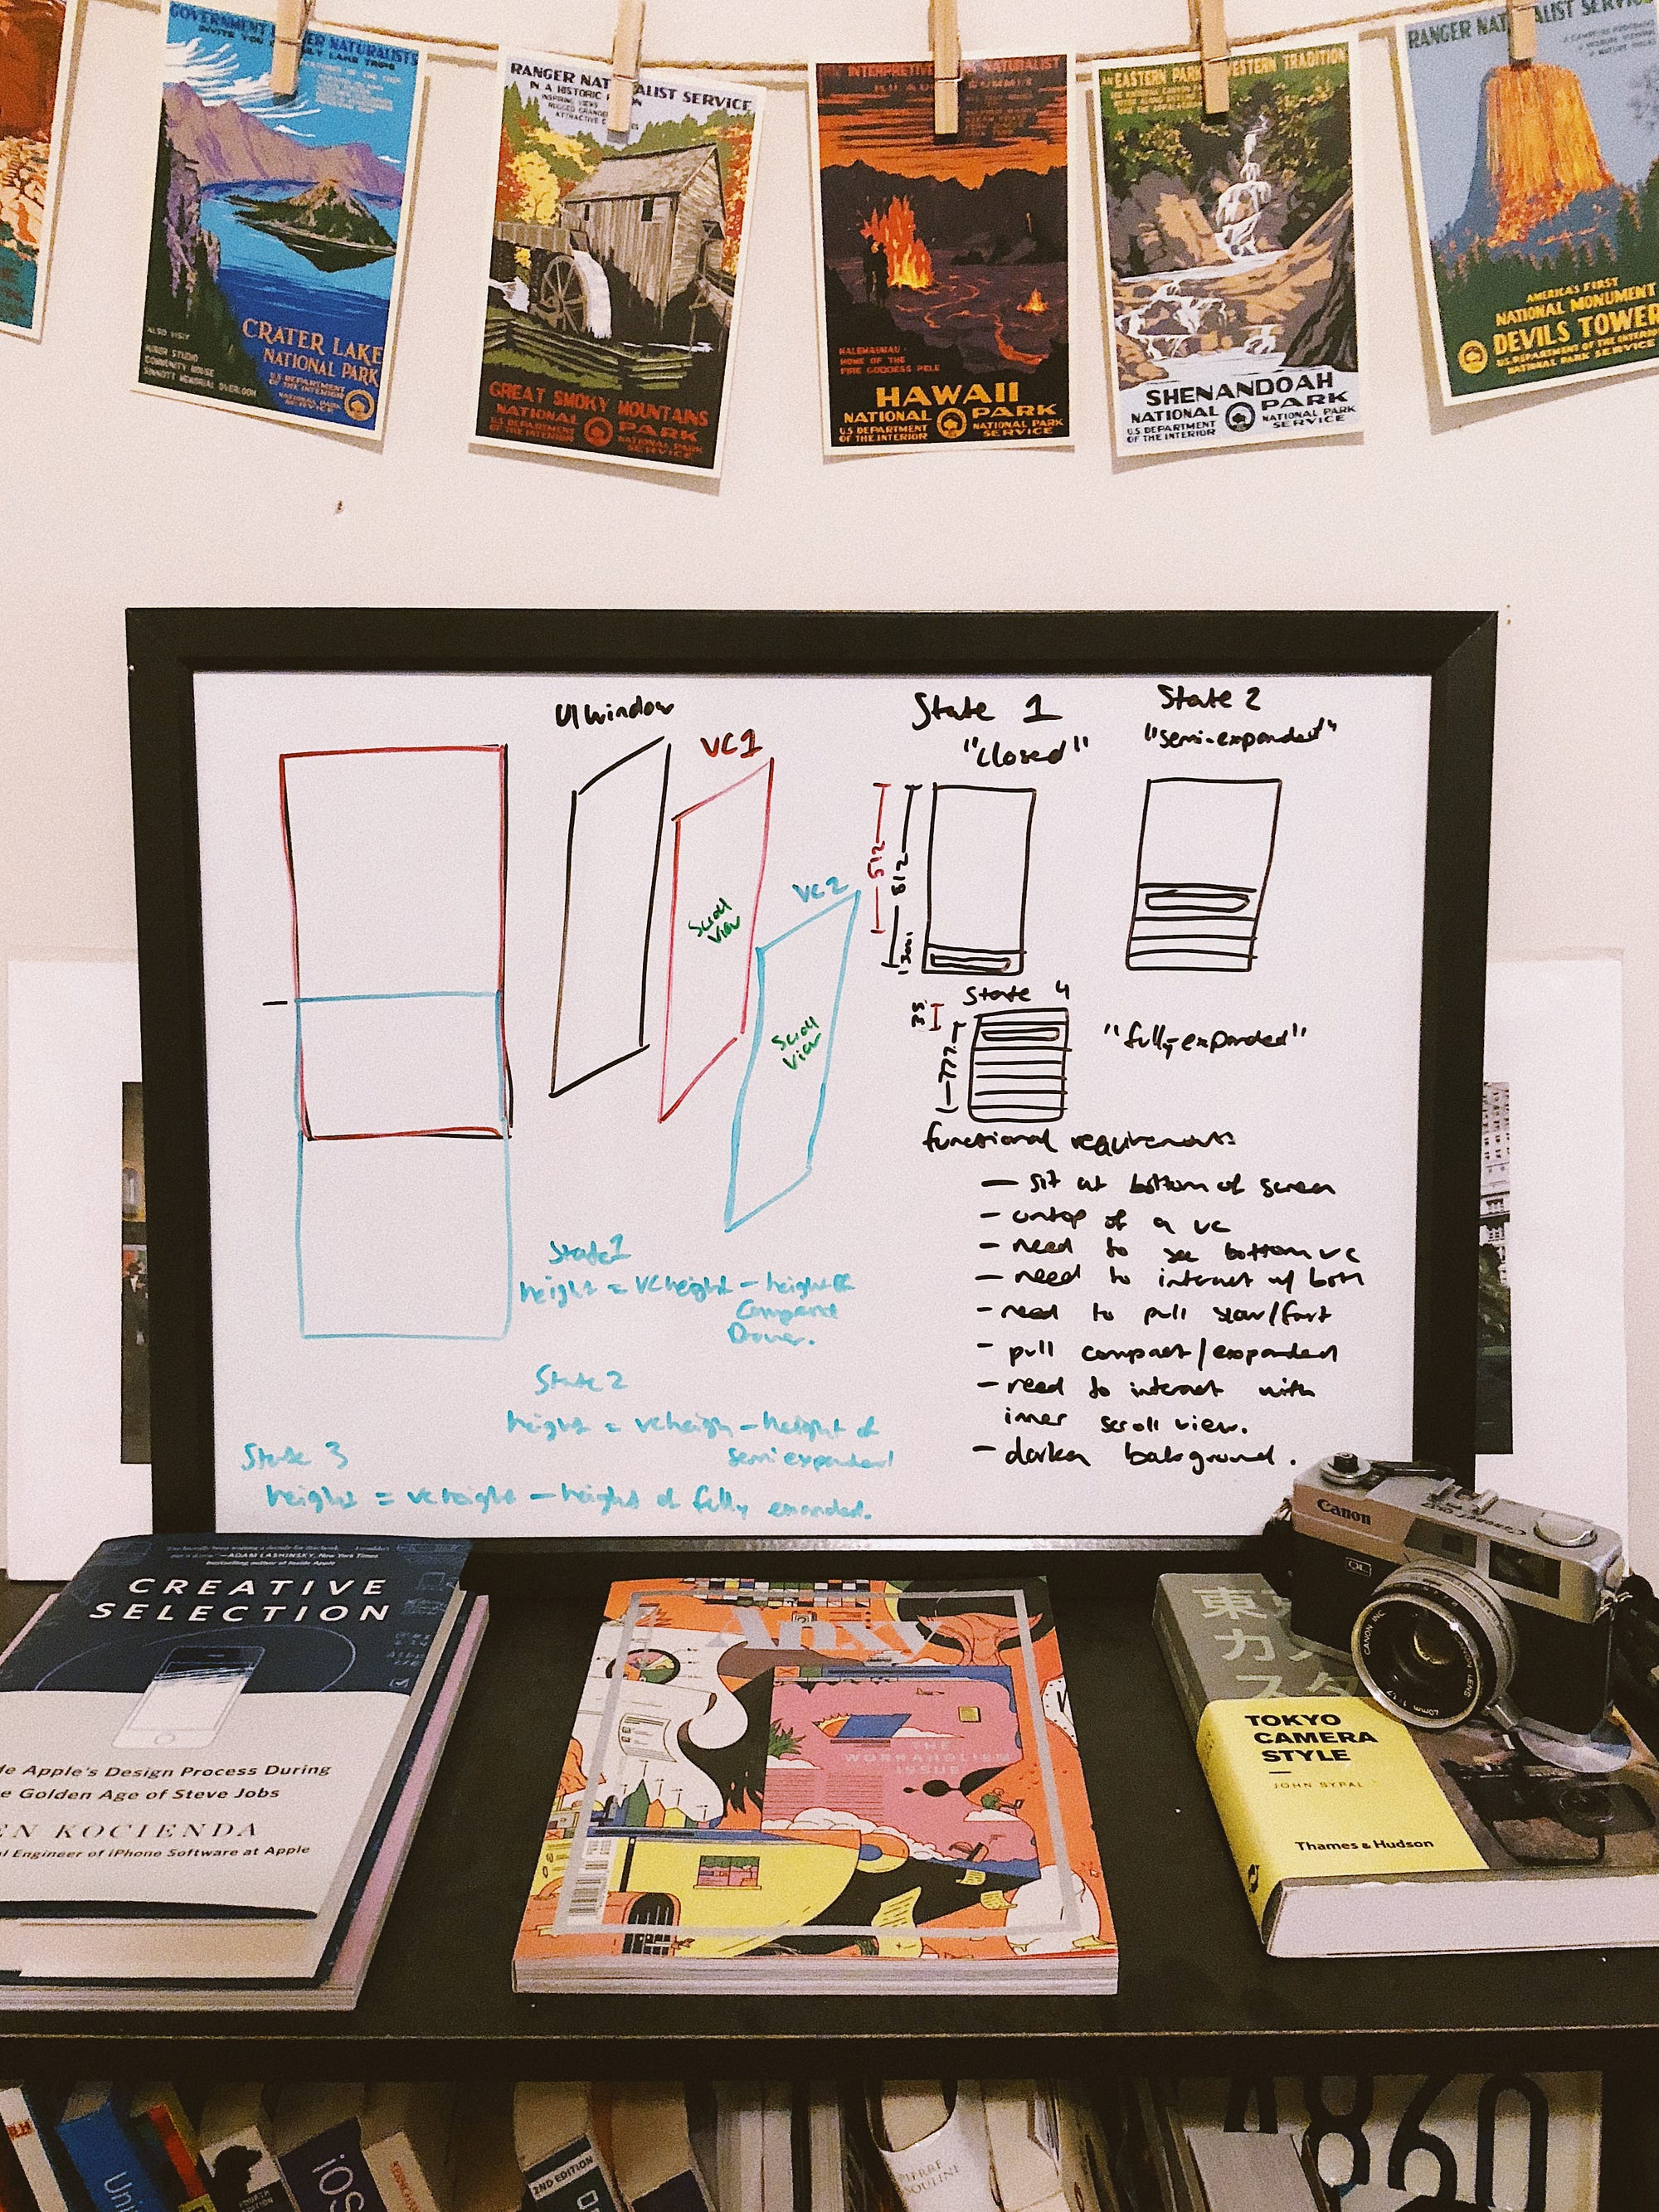 GOVERNMENT
NATURALISTS
INVITE YOU
LAKE TRIPS
ALSO VISIT
COMMUNITY HOUSE
SINNOTT MEMORIAL OVERLOOK
CRATER LAKE
NATIONAL PARK
U.S. DEPARTMENT
OF THE INTERIOR
NATIONAL PARK
SERVICE
RANGER NATURALIST SERVICE
IN A HISTORIC
INSPIRING VIEWS
RUGGED GRANDEUR
ATTRACTIVE
GREAT SMOKY MOUNTAINS
NATIONAL PARK
U.S. DEPARTMENT
OF THE INTERIOR
NATIONAL PARK
SERVICE
INTERPRETIVE
NATURALIST
HALEMAUMAU
HOME OF THE
FIRE GODDESS PELE
HAWAII
NATIONAL PARK
U.S. DEPARTMENT
OF THE INTERIOR
NATIONAL PARK
SERVICE
AN EASTERN PARK
WESTERN TRADITION
SHENANDOAH
NATIONAL PARK
U.S. DEPARTMENT
OF THE INTERIOR
NATIONAL PARK
SERVICE
RANGER NATURALIST SERVICE
AMERICA'S FIRST
NATIONAL MONUMENT
DEVILS TOWER
U.S. DEPARTMENT OF THE INTERIOR
NATIONAL PARK SERVICE
UIWindow
VC1
VC2
Scroll
View
Scroll
View
State 1
"closed"
State 2
"semi-expanded"
512
812
300
State 4
"fully-expanded"
35
777
functional requirements
— sit at bottom of screen
- ontop of a vc
- need to see bottom vc
- need to interact w/ both
- need to pull slow/fast
- pull compact/expanded
- need to interact with
inner scroll view.
- darken background.
State 1
height = vcheight - height of
Compact
Drawer.
State 2
height = vcheigh - height of
semi expanded
State 3
height = vcheight - height of fully expanded.
ADAM LASHINSKY, New York Times
bestselling author of Inside Apple
CREATIVE
SELECTION
de Apple's Design Process During
e Golden Age of Steve Jobs
EN KOCIENDA
al Engineer of iPhone Software at Apple
Anxy
THE
WORKAHOLISM
ISSUE
Canon
QL
CANON INC
東
カ
ス
タ
TOKYO
CAMERA
STYLE
JOHN SYPAL
Thames & Hudson
Uni
FOURTH
EDITION
iOS
2ND EDITION
PIERRE
860